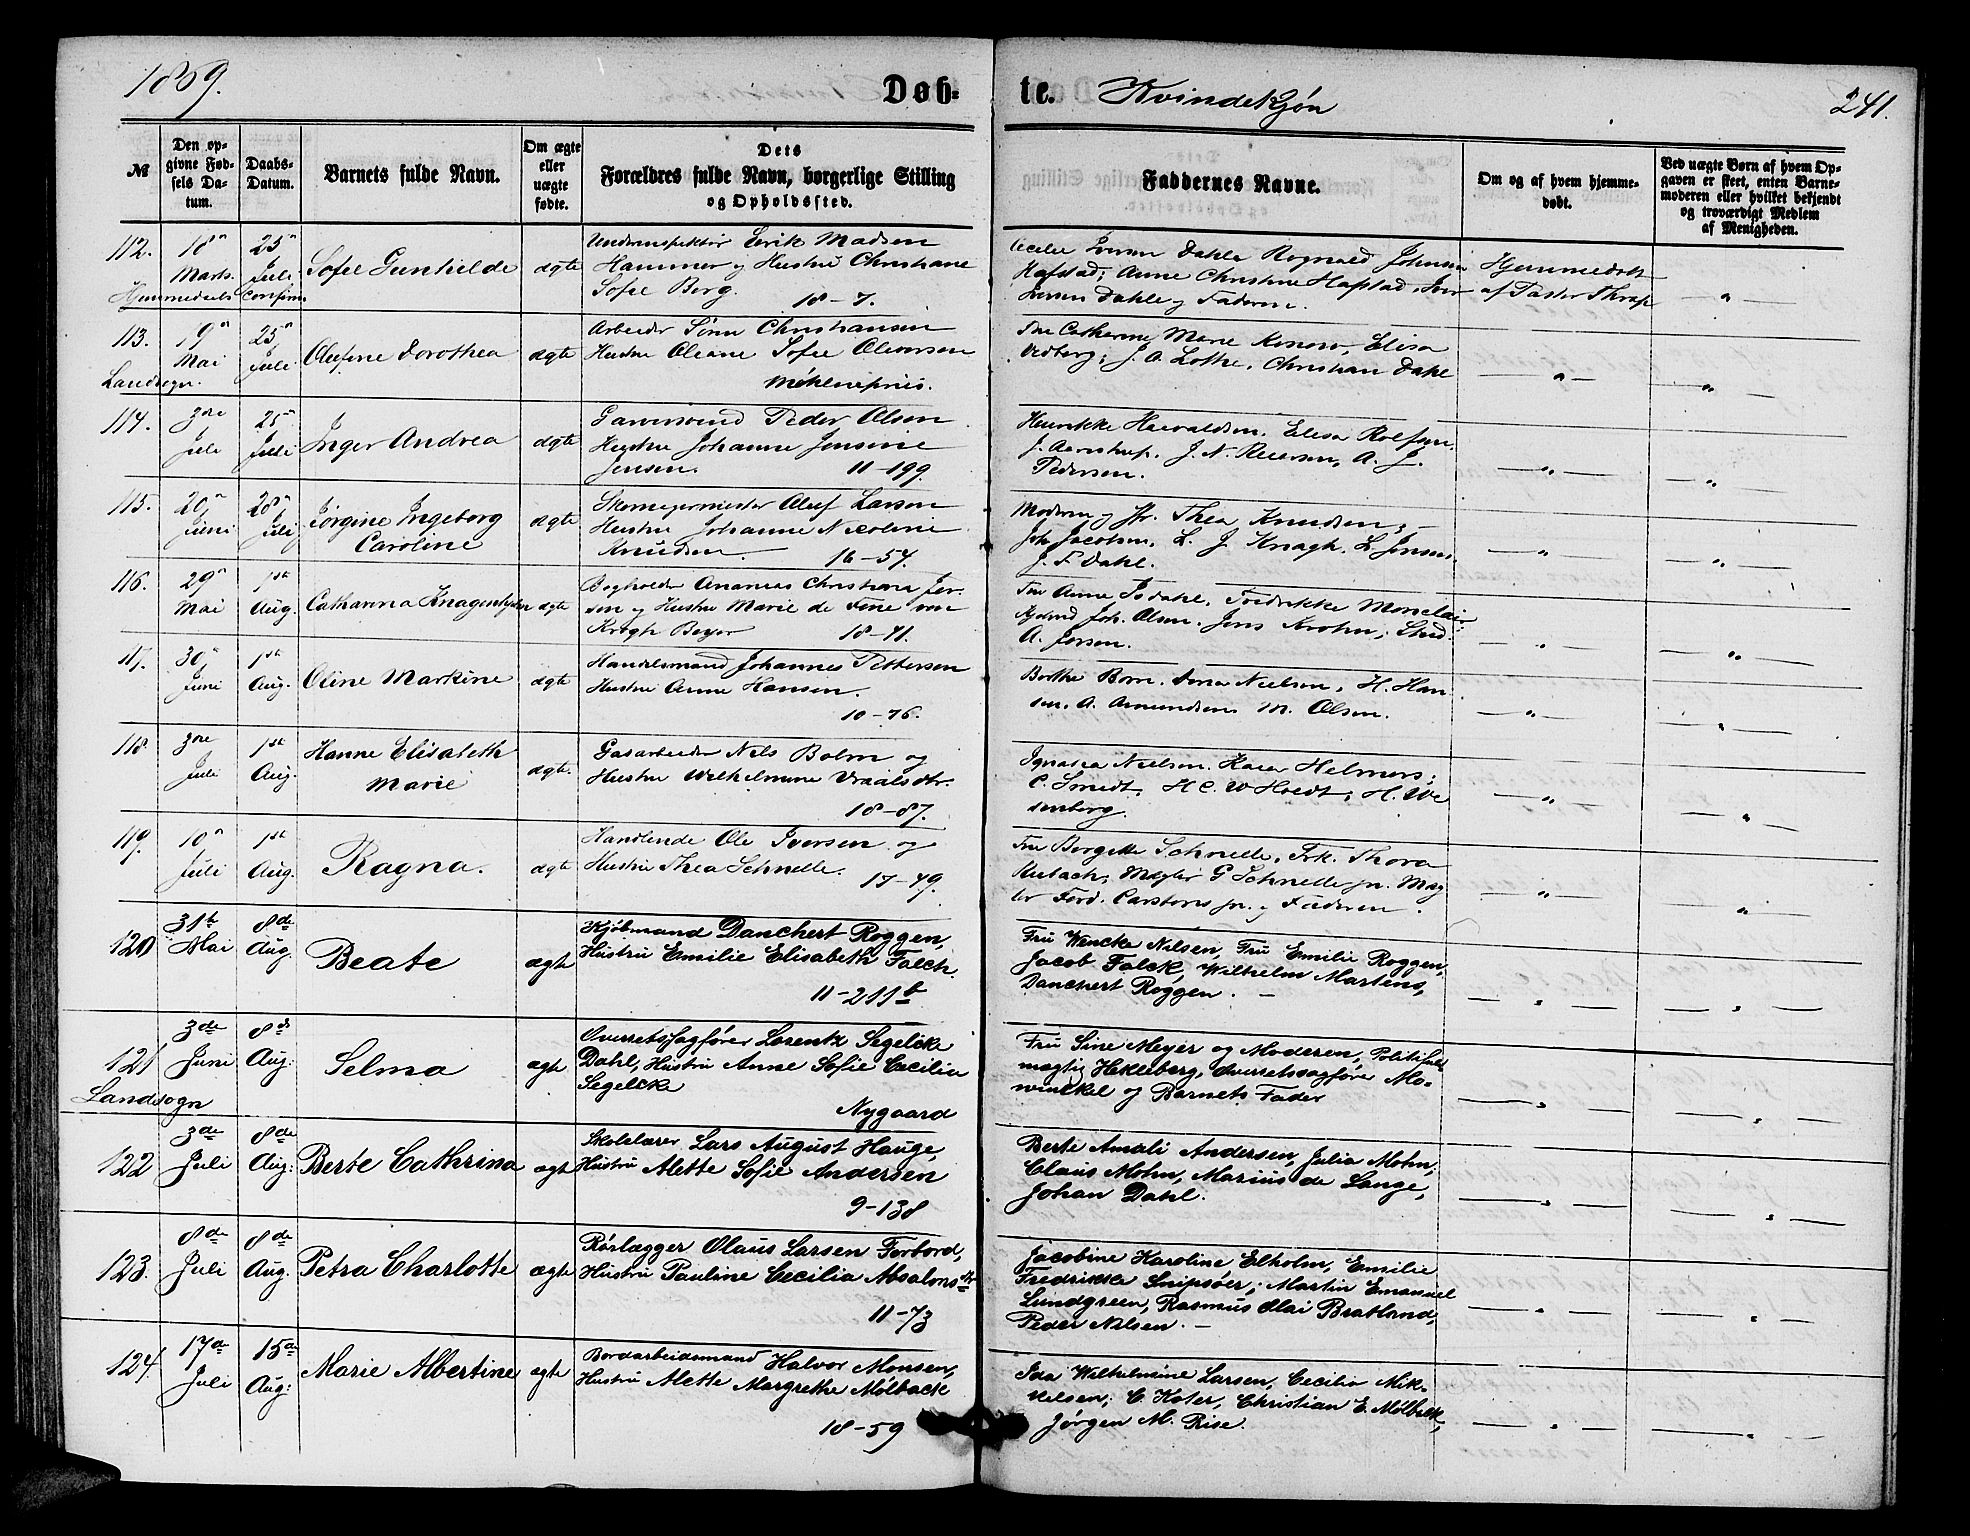 1869.
Døb-
te.
Kvindekjøn
241.
№
Den op-
givne Fød-
sels Da-
tum.
Daabs-
Datum.
Barnets fulde Navn.
Om ægte
eller
uægte
fødte.
Dets
Forældres fulde Navn, borgerlige Stilling
og Opholdssted.
Faddernes Navne.
Om og af hvem hjemme-
døbt.
Ved uægte Børn af hvem Op-
gaven er skeet, enten Barne-
moderen eller hvilket bekjendt
og troværdigt Medlem
af Menigheden.
112.
18n
Marts
25n
Juli
Sofie Gunhilde
ægte
Underinspektør Eerik Madsen
Hammer og Hustru Christiane
Sofie Berg.
18-7.
Iversen Dahle Rognald Johnsen
Hafstad, Anne Christine Hafstad, Iver
Iversen Dahle og Faderen.
Hjemmedøbt
af Pastor Thrap
Hjemmedaabs Confirm
113.
9n
Mai
25n
Juli
Olufine Dorothea
ægte
Arbeider Sørn Christiansen
Hustru Oleane Sofie Oleversen
Møhlenepris.
Fru Catharine Marie Konow, Elisa
Vedberg, J. A. Lothe, Christian Dahl
Landsogn.
114.
3die
Juli
25n
Juli
Inger Andrea
ægte
Garversvend Peder Olsen
Hustru Johanne Jensine
Jensen.
11-199.
Henrikke Harvaldsen, Elisa Rolfsen,
J. Aarestrup, J. N. Reiersen, A. J.
Pedersen.
115.
20n
Juni
28n
Juli
Jørgine Ingeborg
Caroline
ægte
Skomagermester Oluf Larsen
Hustru Johanne Nicoline
Knudsen
16-57.
Moderen og Fr. Thea Knudsen;
Joh. Jacobsen, L. J. Knagh, L. Jensen,
J. F. Dahl.
116.
29n
Mai
1st
Aug.
Catharina Knagenhjelm
ægte
Bogholder Ananias Christopher Jer-
sen og Hustru Marie de Fine von
Krogh Beyer
18-41.
Fru Anne Isdahl, Fredrikke Monclair;
Joh. Olsen, Jens Krohn, Stud.
A. Jersen.
117.
30n
Juni
1st
Aug.
Oline Markine
ægte
Handelsmand Johannes Pettersen
Hustru Anne Hansen.
10-76.
Berthe Børn, Anna Nielsen, H. Han-
sen, A. Amundsen M. Olsen.
118.
3die
Juli
1st
Aug.
Hanne Elisabeth
Marie
ægte.
Gasarbeider Nils Bolm og
Hustru Wilhelmine Vraalsdtr.
18-87.
Ignasia Nielsen, Karen Helmers;
C. Smedt, H C. W Hvedt, H. We
senberg.
119.
10n
Juli
1st
Aug.
Ragna.
ægte
Handlende Ole Iversen og
Hustru Thea Schnelle.
17-49.
Fru Borgette Schnelle, Frk. Thora
Kubach, Mægler G Schnelle jn. Mæg
ler Ferd. Carstens jn. og Faderen.
120
31te
Mai
8de
Aug.
Beate
ægte
Kjøbmand Danchert Roggen,
Hustru Emilie Elisabeth Falch.
11-211b
Fru Wencke Nilsen, Fru Emilie Roggen,
Jacob Falck, Wilhelm Martens,
Danchert Roggen.
121
3de
Juni
8de
Aug:
Selma
ægte
Overretssagfører Lorentz Segelcke
Dahl, Hustru Anne Sofie Cecilia
Segelcke
Nygaard
Fru Sine Meyer og Moderen, Politifuld
mægtig Hekleberg, Overretssagfører Mo-
winckel og Barnets Fader
Landsogn
122
3de
Juli
8de
Aug:
Berte Cathrina
ægte
Skolelærer Lars August Hauge,
Hustru Alette Sofie Andersen
9-138
Berte Amali Andersen, Julia Mohn,
Claus Mohn, Marius de Lange,
Johan Dahl.
123.
8de
Juli
8de
Aug.
Petra Charlotte
ægte
Rørlægger Olaus Larsen Forbord,
Hustru Pauline Cecilia Absalonsdtr
11-73
Jacobine Karoline Elholm, Emilie
Fredrikke Snipsøer, Martin Emanuel
Lundgreen, Rasmus Olai Bratland,
Peder Nilsen.
124.
17de
Juli
15de
Aug:
Marie Albertine
ægte
Bordarbeidsmand Halvor Monsen,
Hustru Alette Margrethe Mølback
18-59
Ida Wilhelmine Larsen, Cecilia Mik-
kelsen, C. Koter, Christian E. Mølback,
Jørgen M. Rise.